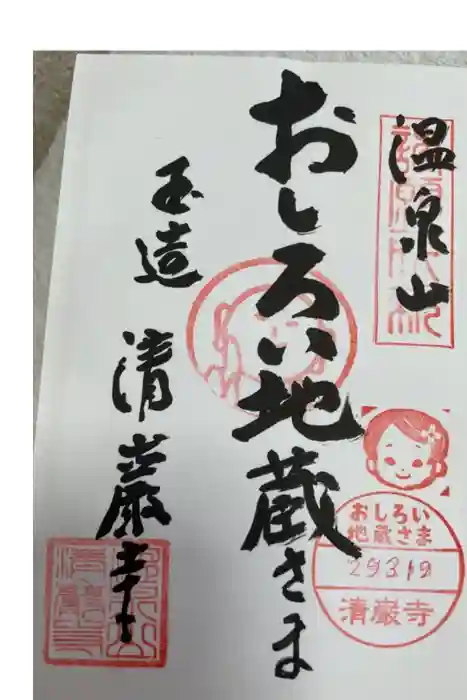 温泉山
おしろい地蔵さま
玉造
清巌寺
おしろい
地蔵さま
29319
清巌寺